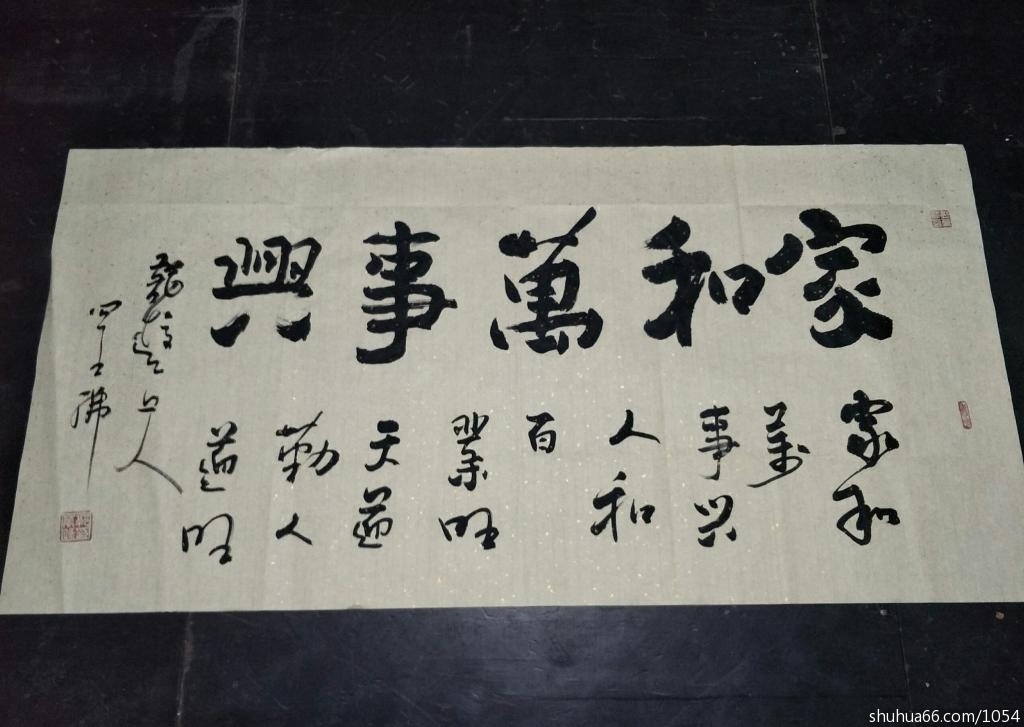 家和萬事興
家和
萬
事兴
人和
百
業旺
天道
勤人
道旺
上人
shuhua66.com/1054